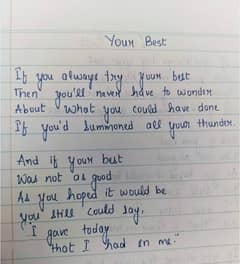 Your Best
If you always try your best
Then you'll never have to wonder
About what you could have done
If you'd summoned all your thunder.
And if your best
Was not as good
As you hoped it would be
You still could say,
"I gave today
that I had in me."